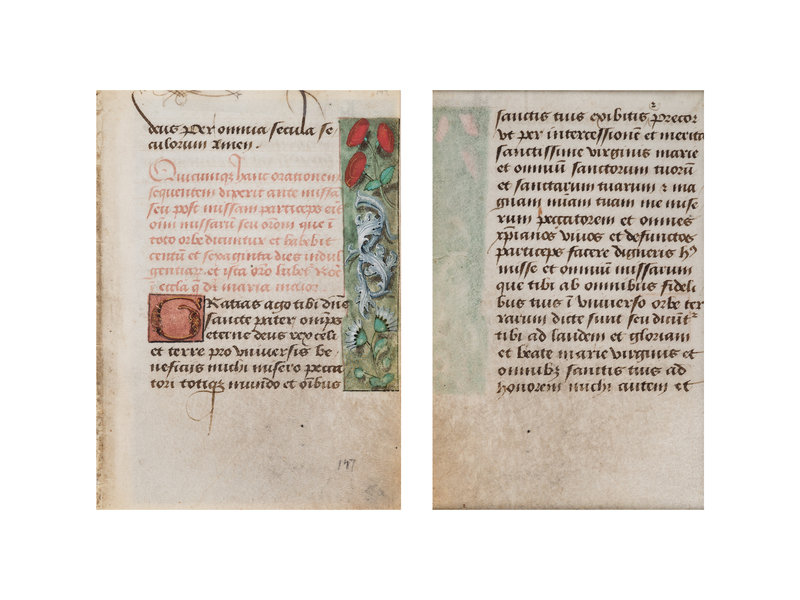 deus Per omnia secula se
culorum Amen.
Quicunqz hanc orationem
sequentem dixerit ante missã
seu post missam particeps erit
oĩm missarũ seu orõm que ĩ
toto orbe dicuntur et habebit
centũ et sexaginta dies indul
gentiarz. et ista
eccla q̃ dr̃ maria maior
GRatias ago tibi dñe
sancte pater, omĩps
eterne deus rex celi
et terre pro vniuersis be
neficijs michi misero pecca
tori totiqz mundo et oĩbus
147
sanctis tuis exibitis precor
vt per intercessionẽ et merita
sanctissime virginis marie
et omniũ sanctorum tuorũ
et sanctarum tuarum z ma
gnam miam tuam me mise
rum peccatorem et omnes
xp̃ianos viuos et defunctos
particeps facere digneris
misse et omniũ missarum
que tibi ab omnibus fideli
bus tuis ĩ vniuerso orbe ter
rarum dicte sunt seu dicũtr
tibi ad laudem et gloriam
et beate marie virginis et
omnibz sanctis tuis ad
honorem michi autem et